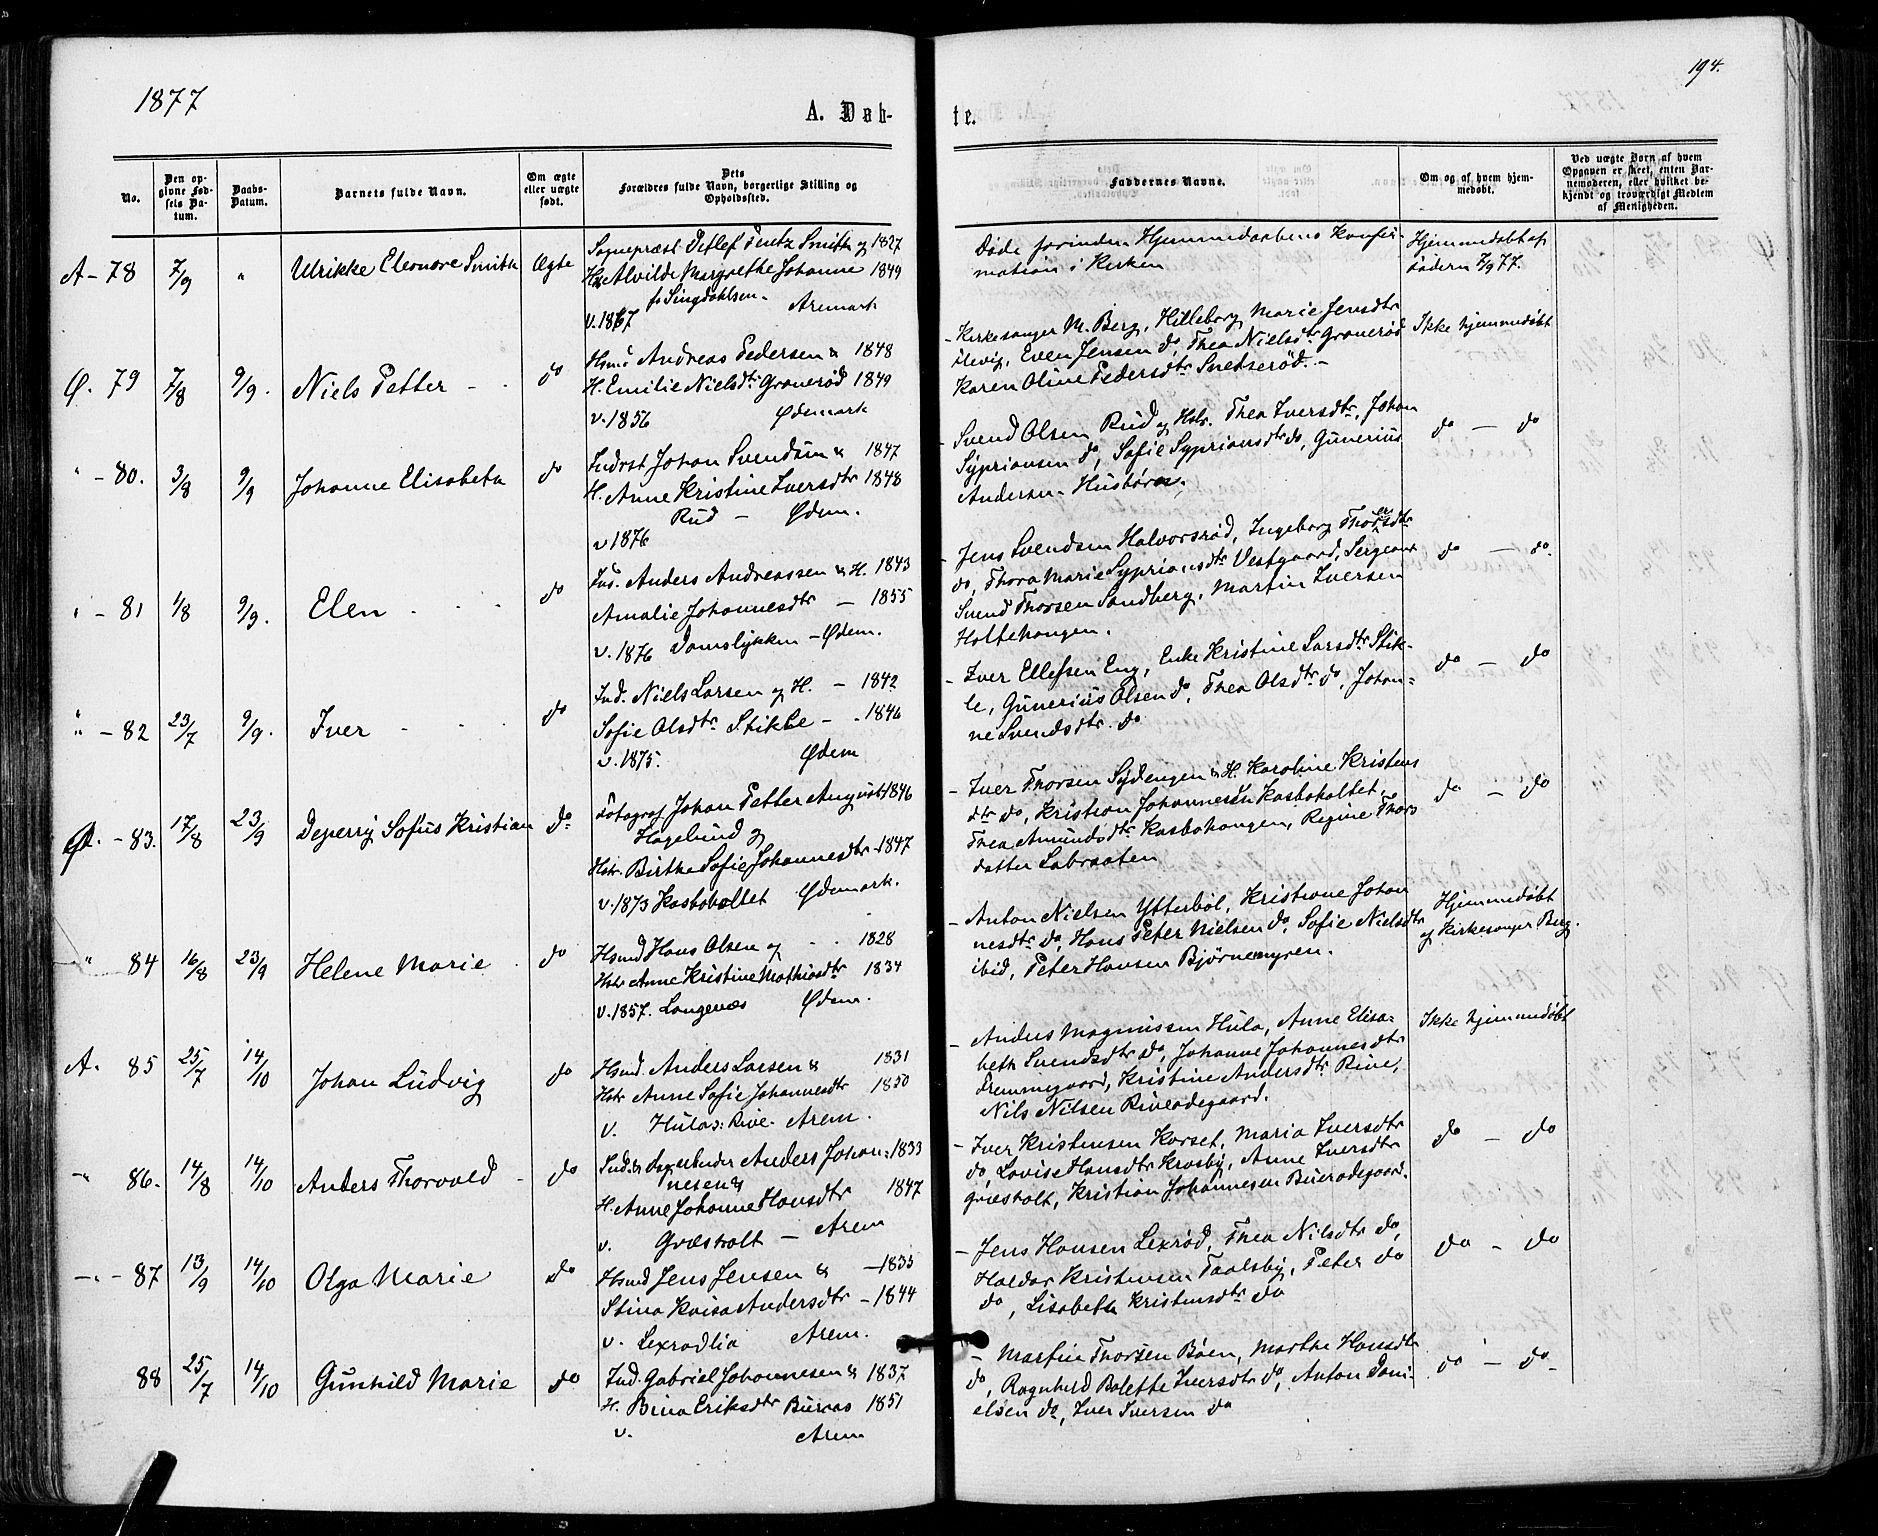 1877
194.
A. Døb-
te.
No.
Den op-
givne Fød-
sels Da-
tum.
Daabs-
Datum.
Barnets fulde Navn.
Om ægte
eller uægte
født.
Dets
Forældres fulde Navn, borgerlige Stilling og
Opholdssted.
Faddernes Navne.
Om og af hvem hjem-
medøbt.
Ved uægte Børn af hvem
Opgaven er skeet, enten Bar-
nemoderen, eller hvilket be-
kjendt og troværdigt Medlem
af Menigheden.
A - 78 7/9 " Ulrikke Eleonore Smith Ægte
Sognepræst Detlef Smith og 1827
H. Alvilde Margrethe Johanne 1849
f. Singdahlsen.
v. 1867 Aremark
Døde forinden Hjemmedaabens Konfir-
mation i Kirken
Hjemmedøbt af
7/9 77.
Ø. 79 7/8 9/9. Niels Petter - do
Hsmd Andreas Pedersen & 1848
H. Emilie Nielsdtr Gronerød 1849
v. 1856 Ødemark
- Kirkesanger M. Berg, Hilleborg Marie Jensdtr
Ulevig, Even Jensen do, Thea Nielsdtr Gronerød
Karen Oline Pedersdtr Snetserød. -
Ikke hjemmedøbt
" - 80. 3/8 9/9 Johanne Elisabeth do
Indrst Johan Svendsen & 1847
H. Anne Kristine Iversdtr 1848
Rud - Ødem.
v 1876
- Svend Olsen Rud og Hstr. Thea Iversdtr, Johan
Syprionsen do, Sofie Syprionsdtr do, Gunerius
Andersen
do - do
" - 81 4/8 9/9. Elen do
Ind. Anders Andreassen & H. 1843
Amalie Johannesdtr - 1855
v. 1876 Damslykken - Ødem.
- Jens Svendsen Halvorsrød, Ingeborg
do, Thora Marie Syprionsdtr Vestgaard, Sergeant
Svend Thorsen Sandberg, Martin Iversen
Holtehangen.
do - do.
" - 82 23/7 9/9. Iver do
Ind. Niels Larsen og H. - 1842
Sofie Olsdtr Stikle - 1846
v. 1875. Ødem
- Iver Ellefsen Eng, Enke Kristine Larsdtr Stik-
le, Gunerius Olsen do, Thea Olsdtr do, Johan-
ne Svendsdtr. do
do - do
Ø. - 83. 17/8 23/9 Deperrij Sofus Kristian do
Fotograf Johan Petter August 1846
Hagelund og
Hstr. Birthe Sofie Johannesdtr - 1847
v. 1873 Kasbokollet Ødemark.
- Iver Thorsen Sydengen & H. Karoline Kristens
dtr do, Kristian Johannesen Kasbokollet,
Thea Amundsdtr Kasbohangen, Regine Thors
datter Labraaten
do - do
" 84 16/8 23/9 Helene Marie do
Hsmd Hans Olsen og 1828
Hstr Anne Kristine Mathisdtr 1834
v. 1857. Langenæs Ødem.
- Anton Nielsen Ytterbøl, Kristiane Johan
nesdtr do, Hans Peter Nielsen do, Sofie Nielsdtr
ibid, Peter Hansen Bjørnemyren.
Hjemmedøbt
af Kirkesanger Berg.
A. 85 25/7 14/10 Johan Ludvig do
Hsmd. Anders Larsen & 1831
Hstr Anne Sofie Johannesdtr 1850
v. Hula s: Rive - Arem.
- Anders Magnussen Hula, Anne Elisa-
beth Svendsdtr do, Johanne Johannesdtr
Fremmegaard, Kristine Andersdtr Rive,
Nils Nilsen Riveødegaard.
Ikke hjemmedøbt
" 86. 14/8 14/10 Anders Thorvald - do
Anders Johan- 1833
nesen &
H. Anne Johanne Hansdtr 1847
v. Græsholt - Arem
- Iver Kristensen Korset, Maria Iversdtr
do, Lovise Hansdtr Krosby, Anne Iversdtr
Græsholt, Kristian Johannesen Buerødegaard.
do - do
" - 87 13/9 14/10 Olga Marie do
Hsmd Jens Jensen & - 1835
Stina Kaisa Andersdtr - 1844
v. Lexrodlia Arem.
- Jens Hansen Lexrød, Thea Nilsdtr do,
Haldor Kristensen Taalsby, Peter do
do, Lisabeth Kristensdtr do
do - do
88 25/7 14/10 Gunhild Marie do
Ind. Gabriel Johannesen & 1837
H. Bina Eriksdtr Bueraas 1851
v. Arem
- Martin Thorsen Bøen, Marthe Hansdtr
do, Ragnhild Bolette Iversdtr do, Anton Dani-
elsen do, Iver Iversen do
do - do -